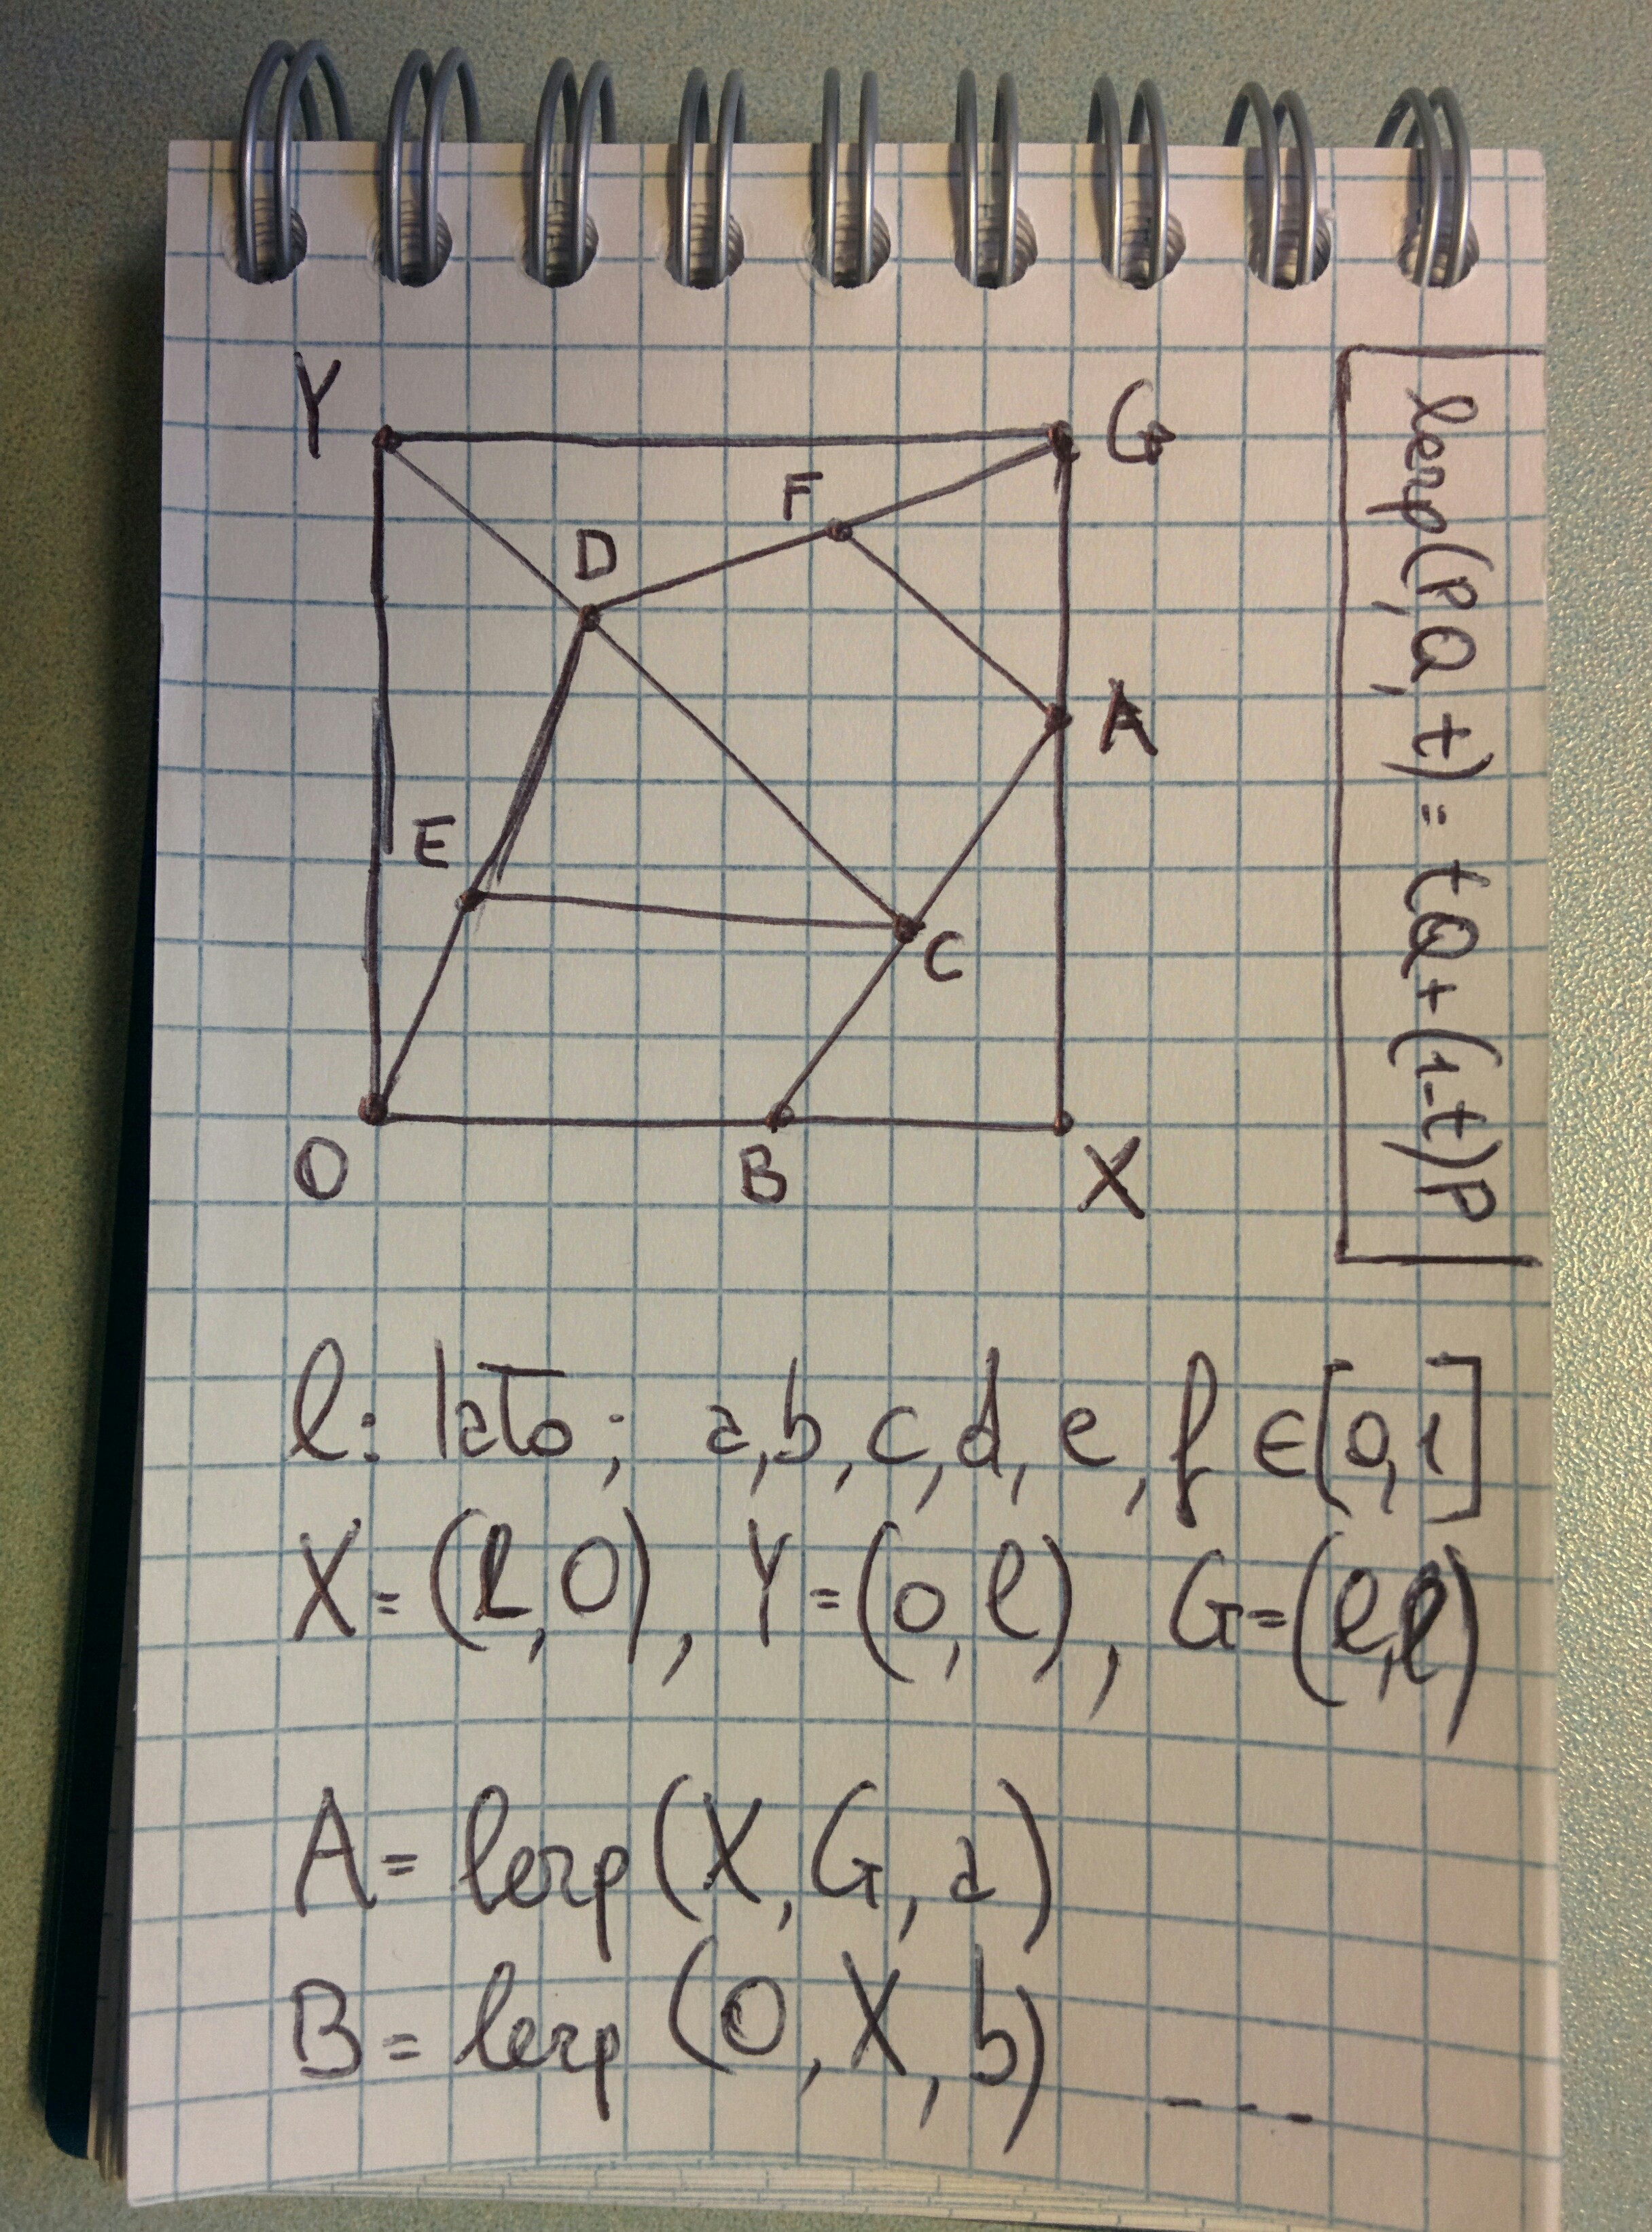 Y G
F
D
A
E
C
O B X
lerp(P,Q,t) = tQ+(1-t)P
l: lato; a,b,c,d,e,f ∈[0,1]
X=(l,0), Y=(0,l), G=(l,l)
A= lerp(X,G,a)
B= lerp(O,X,b) ---